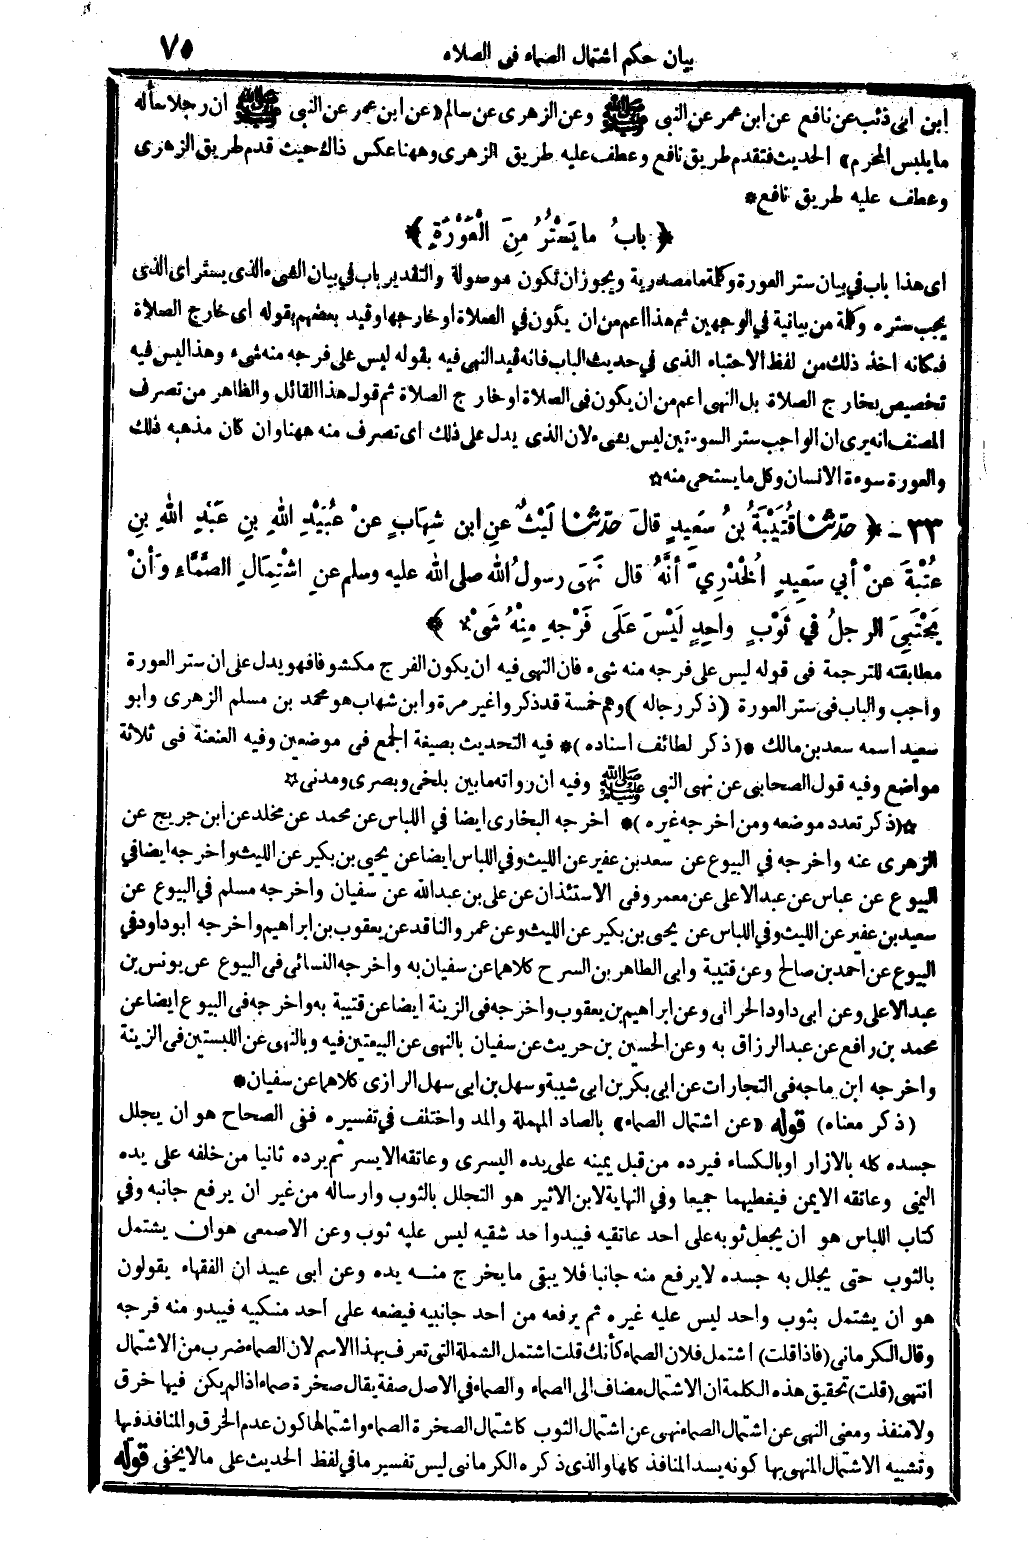 بيان حكم اشتمال الصماء فى الصلاه ٧٥
ابن ابى ذئب عن نافع عن ابن عمر عن النبى ﷺ وعن الزهرى عن سالم «عن ابن عمر عن النبى ﷺ ان رجلا سأله
ما يلبس المحرم» الحديث فتقدم طريق نافع وعطف عليه طريق الزهرى وههنا عكس ذاك حيث قدم طريق الزهرى
وعطف عليه طريق نافع*
﴿ بابُ ما يَسْتُرُ مِنَ الْعَوْرَةِ ﴾
اى هذا باب في بيان ستر العورة وكلمة ما مصدرية ويجوز ان تكون موصولة والتقدير باب في بيان الشىء الذى يستر اى الذى
يجب ستره وكلمة من بيانية في الوجهين ثم هذا اعم من ان يكون في الصلاة او خارجها وقيد بعضهم بقوله اى خارج الصلاة
فكانه اخذ ذلك من لفظ الاحتباء الذى في حديث الباب فانه قيد النهى فيه بقوله ليس على فرجه منه شىء وهذا ليس فيه
تخصيص بخارج الصلاة بل النهى اعم من ان يكون فى الصلاة او خارج الصلاة ثم قول هذا القائل والظاهر من تصرف
المصنف انه يرى ان الواجب ستر السوءتين ليس بشىء لان الذى يدل على ذلك اى تصرف منه ههنا وان كان مذهبه ذلك
والعورة سوءة الانسان وكل ما يستحى منه☆
٣٣ - ﴿ حدّثنا قُتَيْبَةُ بنُ سَعِيدٍ قالَ حدّثنا لَيْثٌ عنِ ابنِ شِهَابٍ عنْ عُبَيْدِ اللهِ بنِ عَبْدِ اللهِ بنِ
عُتْبَةَ عنْ أبي سَعِيدٍ الْخُدْرِيِّ أنَّهُ قال نَهَى رسولُ الله صلى الله عليه وسلم عنِ اشْتِمَالِ الصَّمَّاءِ وَأنْ
يَحْتَبِيَ الرجلُ في ثَوْبٍ واحِدٍ لَيْسَ عَلَى فَرْجِهِ مِنْهُ شَىْءٌ ﴾
مطابقته للترجمة فى قوله ليس على فرجه منه شىء فان النهى فيه ان يكون الفرج مكشوفا فهو يدل على ان ستر العورة
واجب والباب فى ستر العورة (ذكر رجاله) وهم خمسة قد ذكروا غير مرة وابن شهاب هو محمد بن مسلم الزهرى وابو
سعيد اسمه سعد بن مالك *(ذكر لطائف اسناده)* فيه التحديث بصيغة الجمع فى موضعين وفيه العنعنة فى ثلاثة
مواضع وفيه قول الصحابى عن نهى النبى ﷺ وفيه ان رواته ما بين بلخى وبصرى ومدنى☆
☆(ذكر تعدد موضعه ومن اخرجه غيره)* اخرجه البخارى ايضا في اللباس عن محمد عن مخلد عن ابن جريج عن
الزهرى عنه واخرجه في البيوع عن سعد بن عفير عن الليث وفي اللباس ايضا عن يحيى بن بكير عن الليث واخرجه ايضا في
البيوع عن عباس عن عبد الاعلى عن معمر وفى الاستئذان عن على بن عبد الله عن سفيان واخرجه مسلم في البيوع عن
سعيد بن عفير عن الليث وفي اللباس عن يحيى بن بكير عن الليث وعن عمرو الناقد عن يعقوب بن ابراهيم واخرجه ابو داود في
البيوع عن احمد بن صالح وعن قتيبة وابى الطاهر بن السرح كلاهما عن سفيان به واخرجه النسائى فى البيوع عن يونس بن
عبد الاعلى وعن ابى داود الحرانى وعن ابراهيم بن يعقوب واخرجه فى الزينة ايضا عن قتيبة به واخرجه فى البيوع ايضا عن
محمد بن رافع عن عبد الرزاق به وعن الحسين بن حريث عن سفيان بالنهى عن البيعتين فيه وبالنهى عن اللبستين فى الزينة
واخرجه ابن ماجه فى التجارات عن ابى بكر بن ابى شيبة وسهل بن ابى سهل الرازى كلاهما عن سفيان*
(ذكر معناه) قوله «عن اشتمال الصماء» بالصاد المهملة والمد واختلف في تفسيره ففى الصحاح هو ان يجلل
جسده كله بالازار او بالكساء فيرده من قبل يمينه على يده اليسرى وعاتقه الايسر ثم يرده ثانيا من خلفه على يده
اليمنى وعاتقه الايمن فيغطيهما جميعا وفي النهاية لابن الاثير هو التجلل بالثوب وارساله من غير ان يرفع جانبه وفي
كتاب اللباس هو ان يجعل ثوبه على احد عاتقيه فيبدو احد شقيه ليس عليه ثوب وعن الاصمعى هو ان يشتمل
بالثوب حتى يجلل به جسده لا يرفع منه جانبا فلا يبقى ما يخرج منه يده وعن ابى عبيد ان الفقهاء يقولون
هو ان يشتمل بثوب واحد ليس عليه غيره ثم يرفعه من احد جانبيه فيضعه على احد منكبيه فيبدو منه فرجه
وقال الكرمانى (فاذا قلت) اشتمل فلان الصماء كأنك قلت اشتمل الشملة التى تعرف بهذا الاسم لان الصماء ضرب من الاشتمال
انتهى (قلت) تحقيق هذه الكلمة ان الاشتمال مضاف الى الصماء والصماء في الاصل صفة يقال صخرة صماء اذا لم يكن فيها خرق
ولا منفذ ومعنى النهى عن اشتمال الصماء نهى عن اشتمال الثوب كاشتمال الصخرة الصماء واشتمالها كون عدم الخرق والمنافذ فيها
وتشبيه الاشتمال المنهى بها كونه يسد المنافذ كلها والذى ذكره الكرمانى ليس تفسير ما في لفظ الحديث على ما لا يخفى قوله